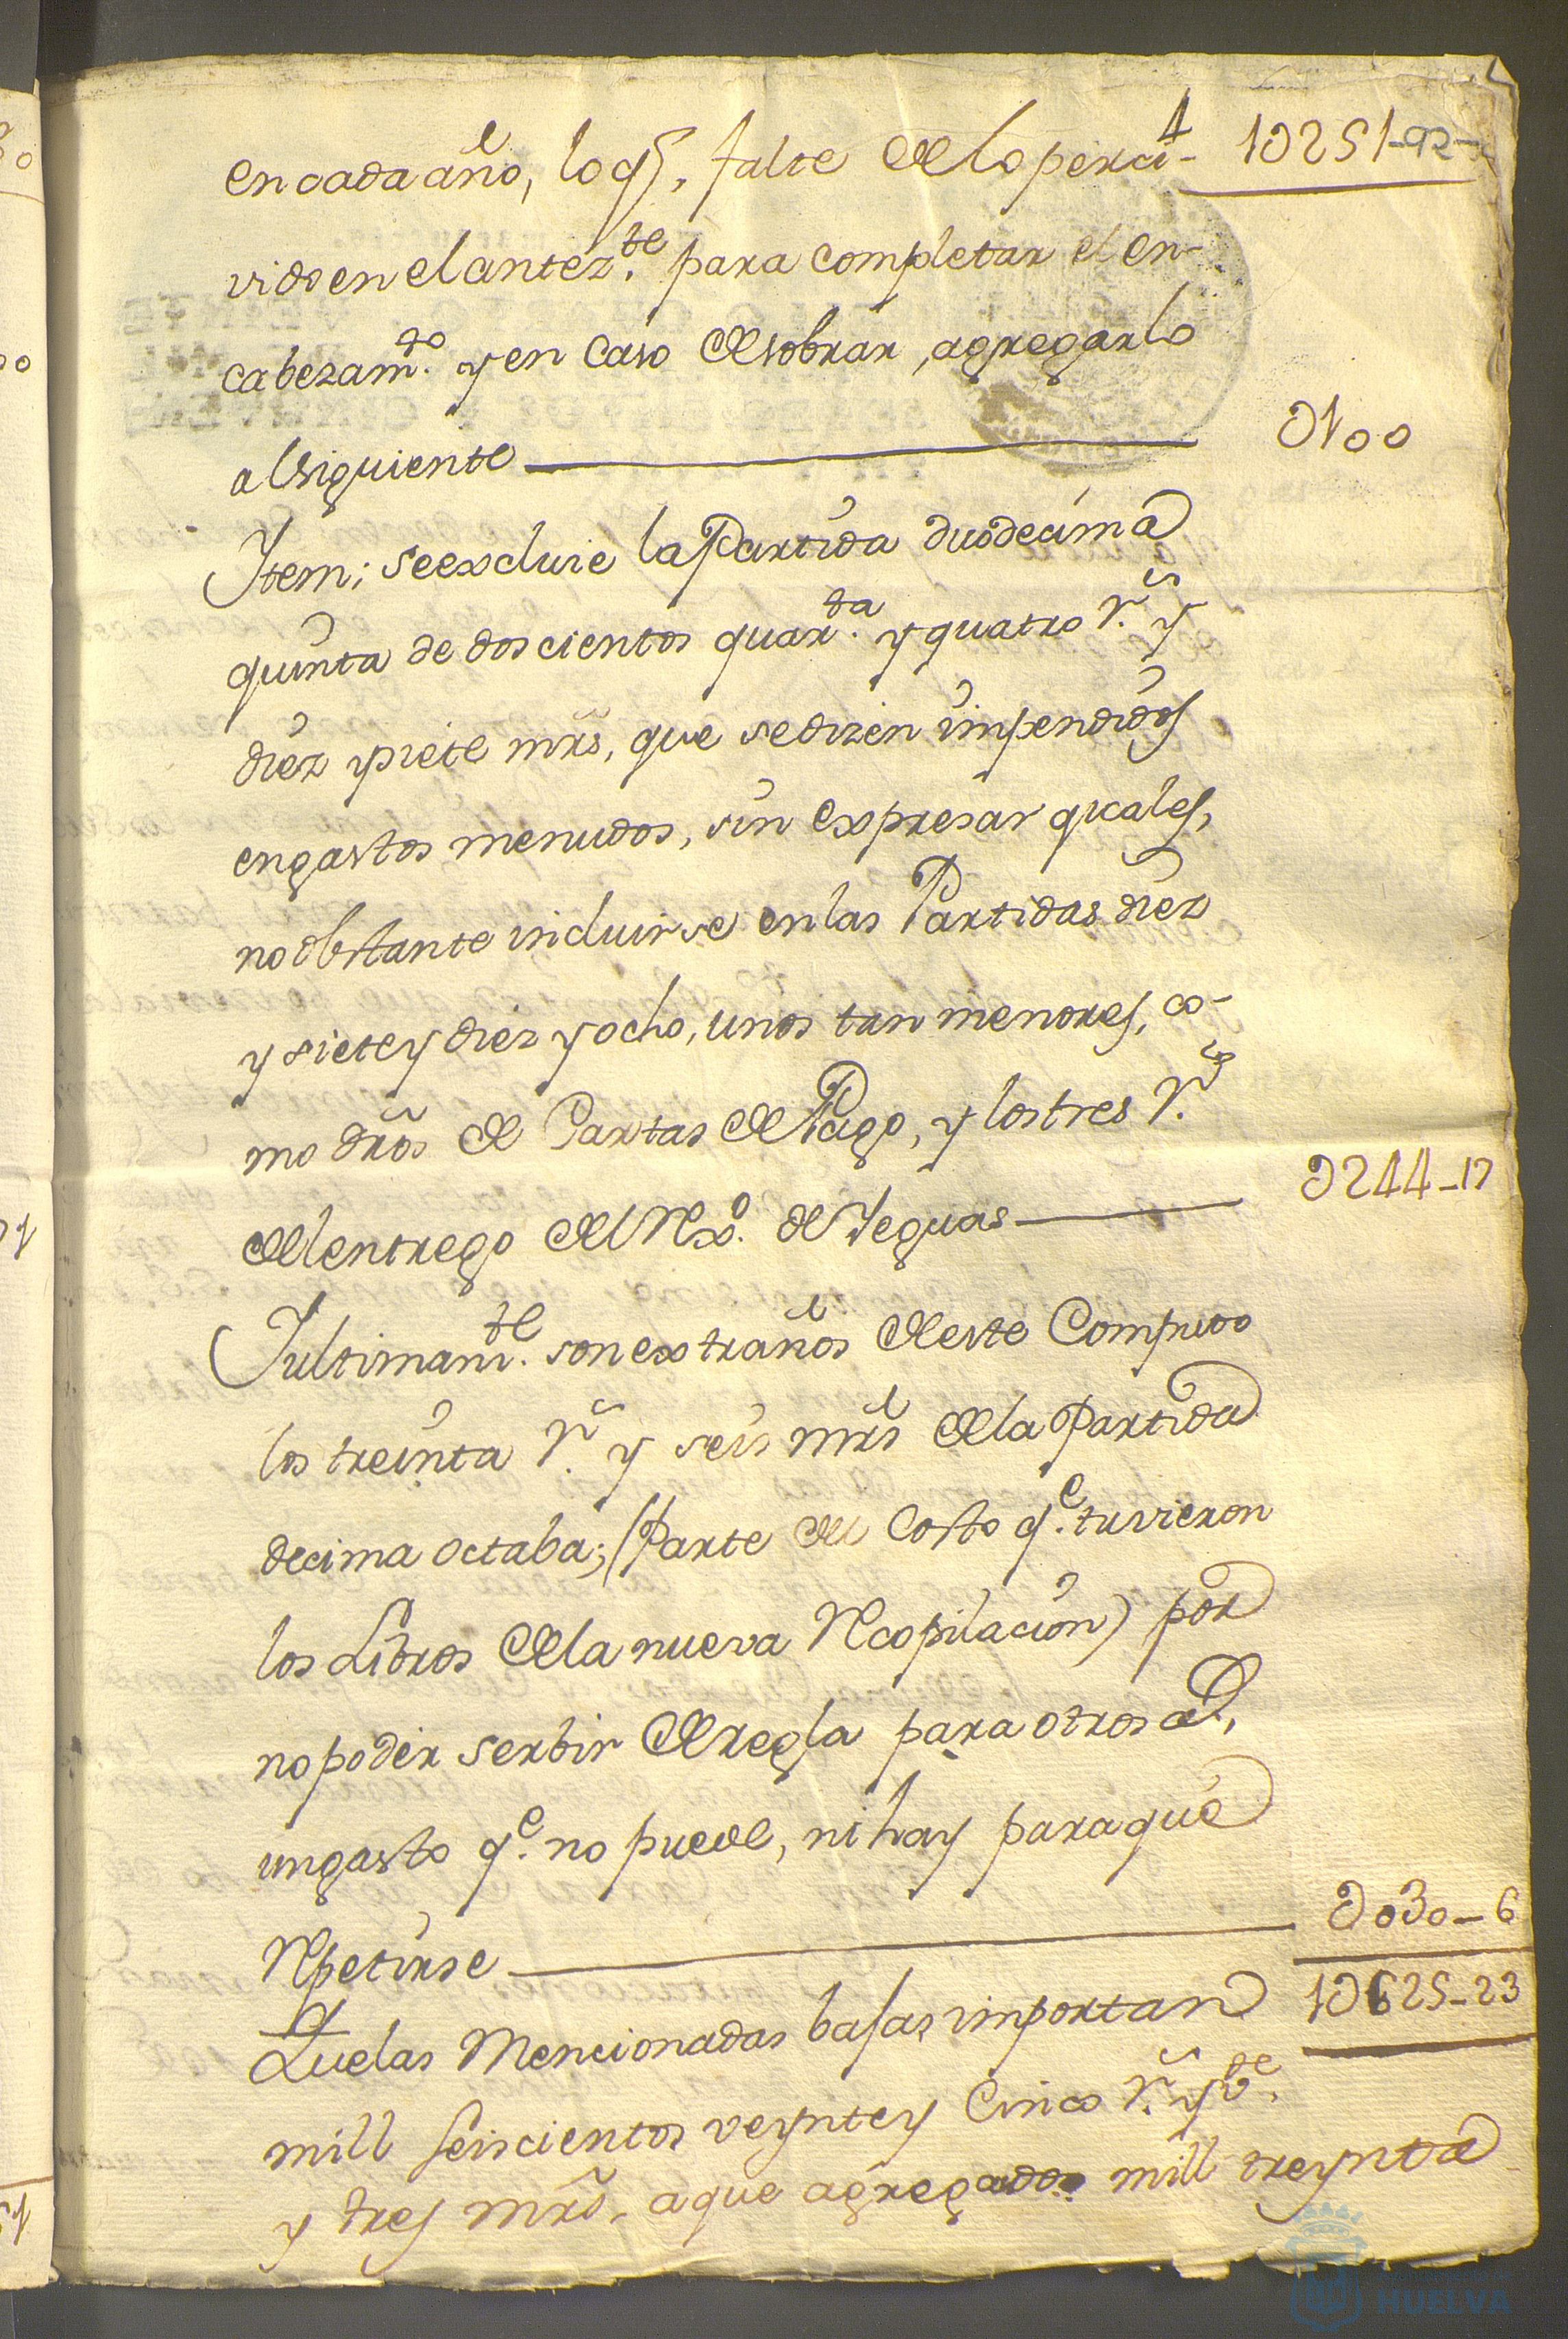 en cada año, lo q̃. falte de lo perci- 1U251-
vido en el antez.te para completar el en-
cabezam.to y en caso de sobrar, agregarlo
al siguiente U100
Item; se excluie la Partida duodecima
quinta de doscientos quar.ta y quatro r.s y
diez y siete mrs, que se dizen impendidos
en gastos menudos, sin expresar quales,
no obstante incluirse en las Partidas diez
y siete y diez y ocho, unos tan menores, co-
mo dr̃os de Cartas de Pago, y los tres r.s
del entrego del Rex.o de Yeguas U244-17
Y ultimam.te son extraños de este Computo
los treinta r.s y seis mrs de la Partida
decima octaba; (Parte del Costo q.e tuvieron
los Libros de la nueva Recopilacion) por
no poder serbir de regla para otros a.s,
un gasto q.e no puede, ni hay para que
Repetirse U030-6
Que las Mencionadas bajas importan 1U625-23
mill seiscientos veynte y Cinco r.s y v.te
y tres mrs, a que agregados mill treynta
HUELVA